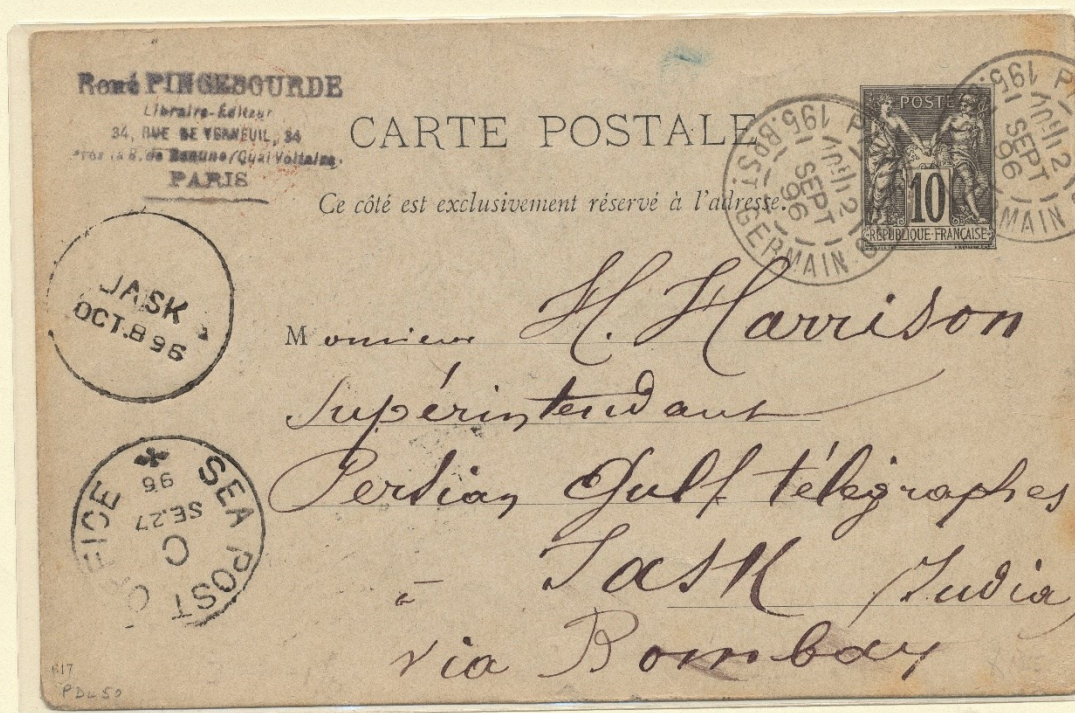 René PINCEBOURDE
Libraire-Éditeur
34, RUE DE VERNEUIL, 34
Près la R. de Beaune/Quai Voltaire.
PARIS
CARTE POSTALE
Ce côté est exclusivement réservé à l'adresse.
POSTE
10
RÉPUBLIQUE FRANÇAISE
195. BD ST GERMAIN
SEPT
96
195. B
SEPT
96
MAIN
JASK
OCT. 8 96
Monsieur H. Harrison
Supérintendant
Persian Gulf télégraphes
à Jask India
via Bombay
SEA POST OFFICE
C
SE.27
96
PDL 50